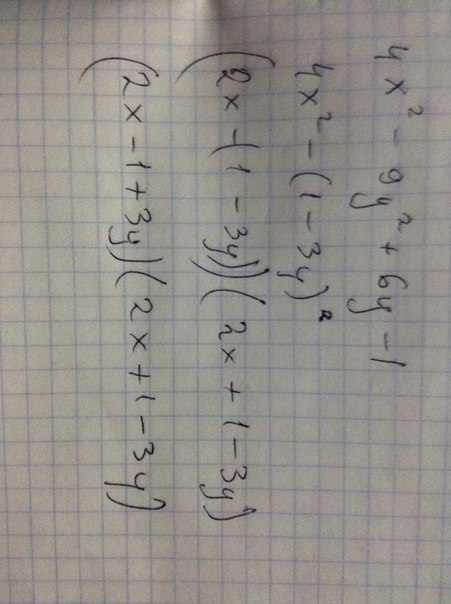 4x² - 9y² + 6y - 1
4x² - (1 - 3y)²
(2x - (1 - 3y))(2x + 1 - 3y)
(2x - 1 + 3y)(2x + 1 - 3y)